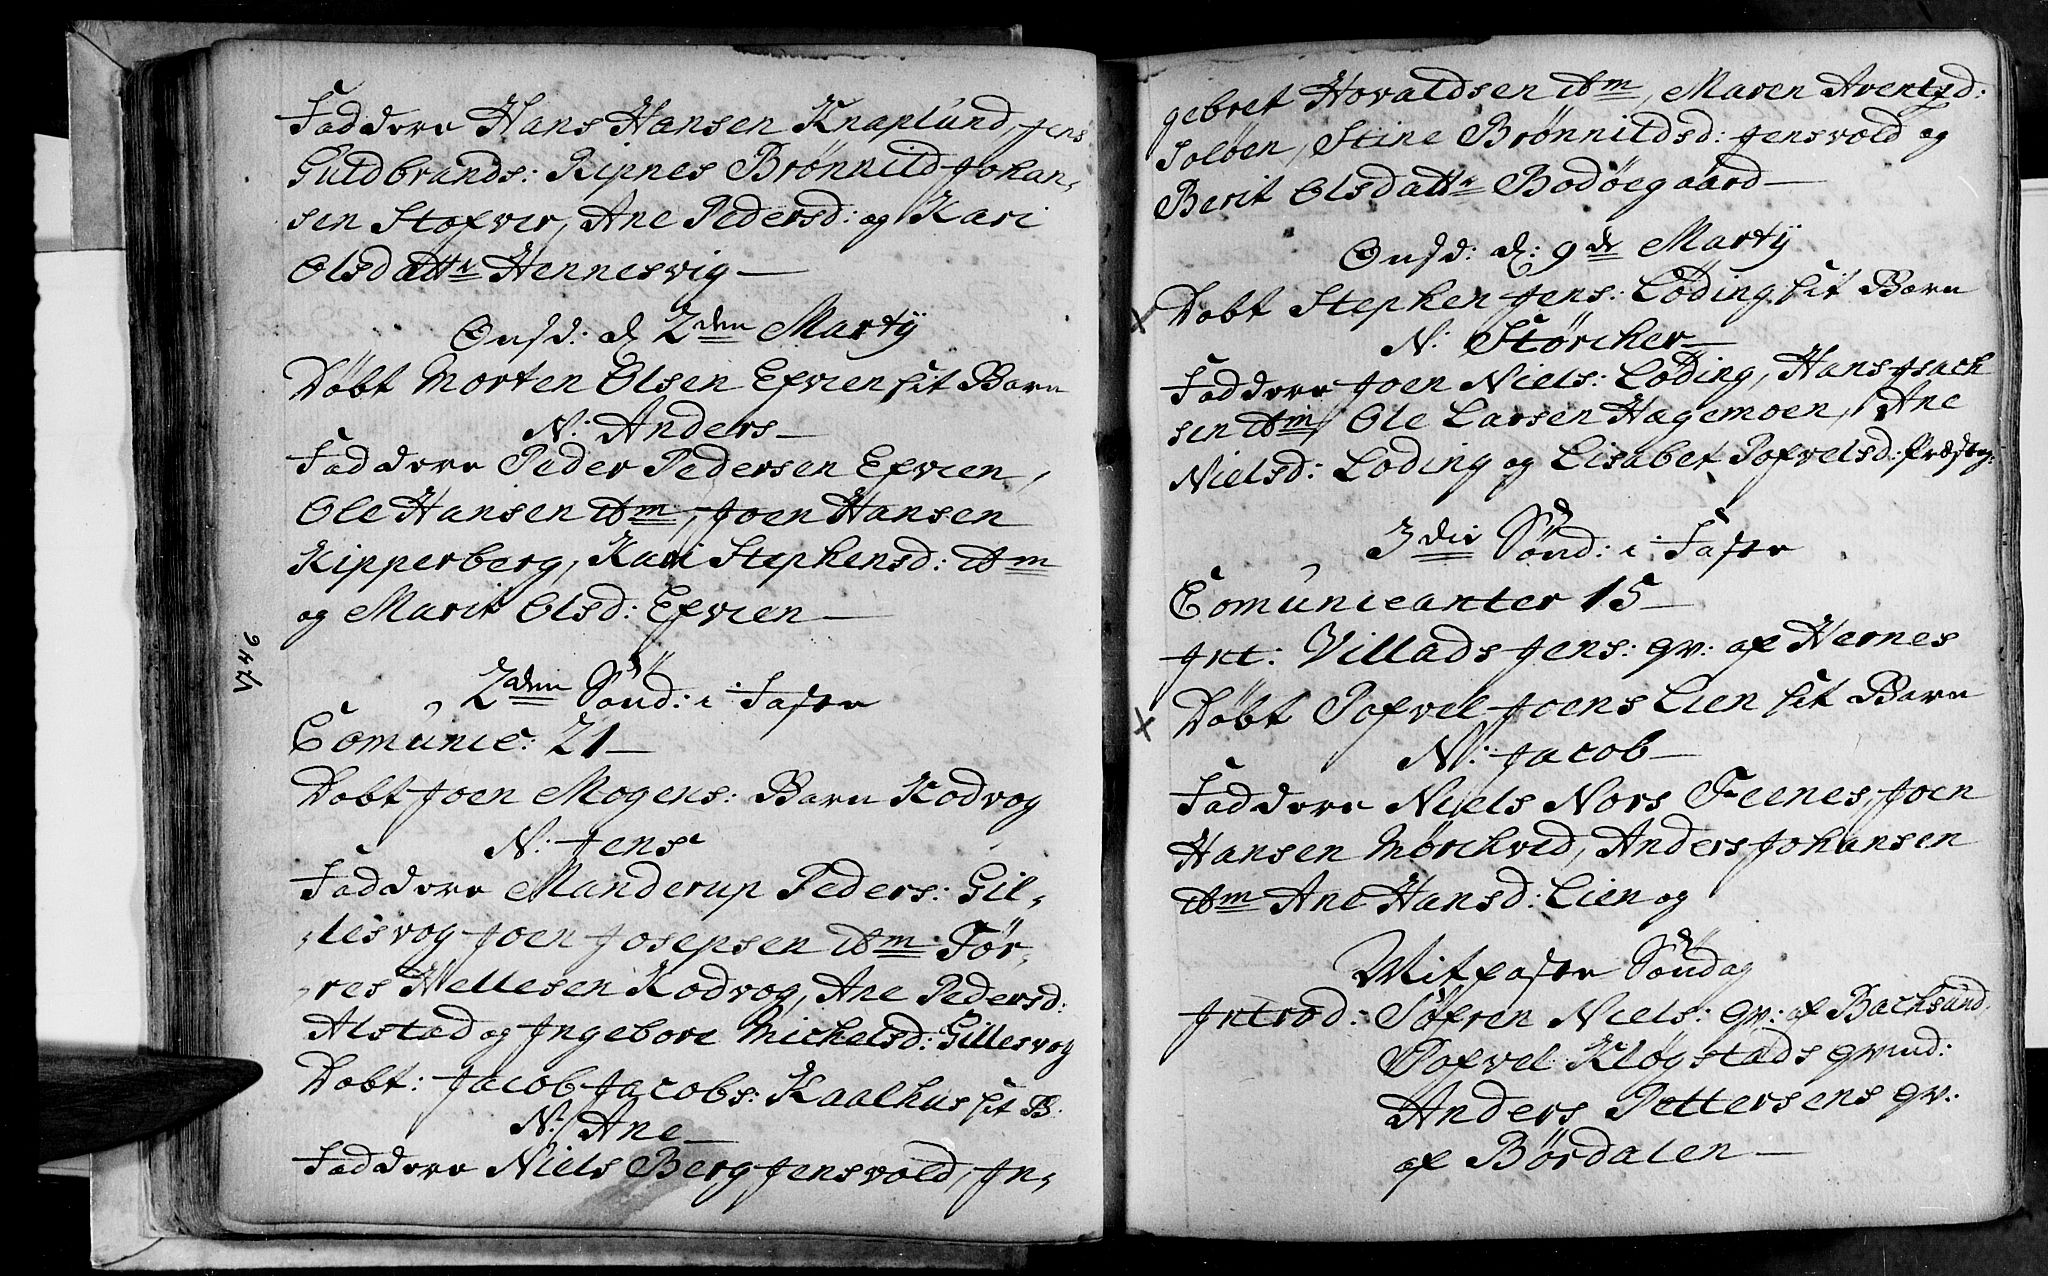 Faddere Hans Hansen Knaplund, Jens
Guldbrands: Ripnes Brønnild Johan-
sen Stofver, Ane Pedersd: og Kari
Olsdattr Hennesvig —
Onsd: d 2den Martÿ
Døbt Morten Olsen Efvien sit Barn
N: Anders —
Faddere Peder Pedersen Efvien,
Ole Hansen ibm, Joen Hansen
Kipperberg, Kari Stephensd: ibm
og Marit Olsd: Efvien —
1746
2den Sønd: i Faste
Comunic: 21 —
Døbt Joen Mogens: Barn Kodvog
N: Jens
Faddere Manderup Peders: Gil-
lesvog Joen Josepsen ibm Tør-
res Hellesen Kodvog, Ane Pedersd:
Alstad og Ingebore Michelsd: Gillesvog
Døbt: Jacob Jacobs: Kaalhus sit B.
N: Ane —
Faddere Niels Berg Jensvold, In-
gebret Hovaldsen ibm, Maren Arentsd:
Soløen, Stine Brønnildsd: Jensvold og
Berit Olsdattr Bodøegaard —
Onsd: d: 9de Martÿ
Døbt Stephen Jens: Løding sit Barn
N: Størcher —
Faddere Joen Niels: Løding, Hans Isach
sen ibm, Ole Larsen Hagemoen, Ane
Nielsd: Løding og Lisabet Pofvelsd: Præsteg:
3die Sønd: i Faste
Comunicanter 15 —
Int: Villads Jens: qv: af Hernes
Døbt Pofvel Joens Lien sit Barn
N: Jacob —
Faddere Niels Nors Feenes, Joen
Hansen Mørchved, Anders Johansen
ibm Ane Hansd: Lien og
Mitfaste Søndag
Introd: Søfren Niels: qv: af Bachsund,
Pofvel Kløgstads qvind:
Anders Pettersens qv:
af Børdalen —